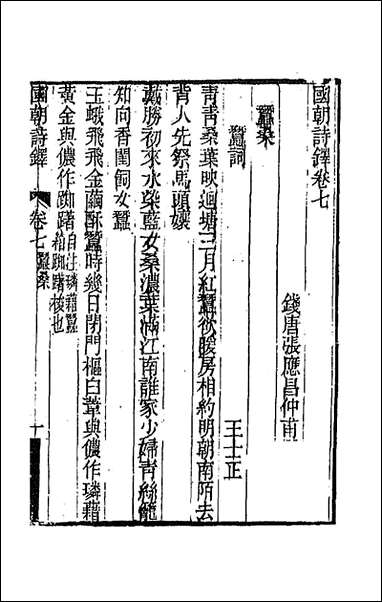 國朝詩鐸卷七
錢唐張應昌仲甫
蠶桑
蠶詞
王士正
青青桑葉映迴塘三月紅蠶欲暖房相約明朝南陌去
背人先祭馬頭孃
戴勝初來水染藍女桑濃葉滿江南誰家少婦青絲籠
知向香閨飼女蠶
玉蛾飛飛金繭酥蠶時幾日閉門樞白葦與儂作璘藉
黃金與儂作踟躇自注璘藉蠶
箔踟躇梭也
國朝詩鐸
卷七蠶桑
一